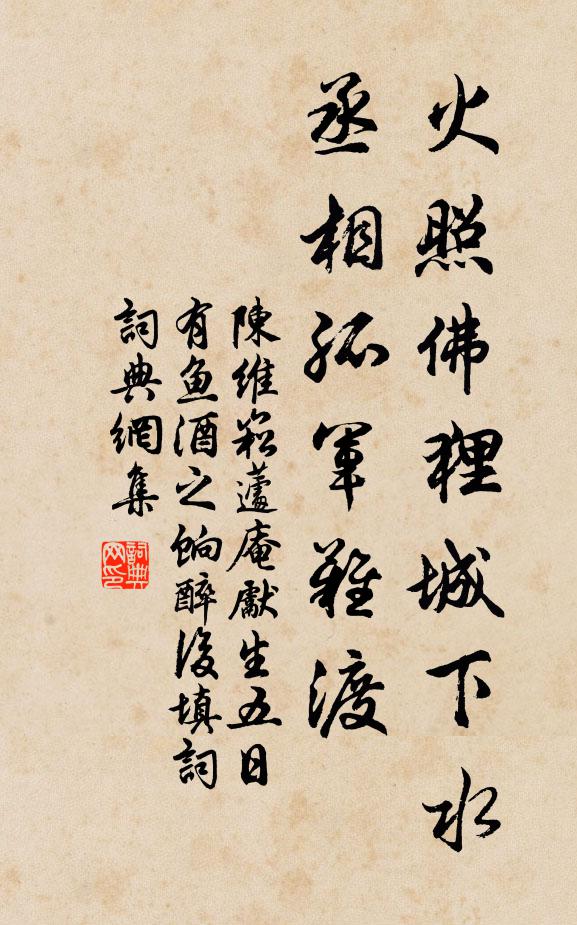 火照佛狸城下水
丞相孤軍難渡
陳維崧蘧庵獻生五日
有魚酒之餉醉後填詞
詞典網集
詞典网印